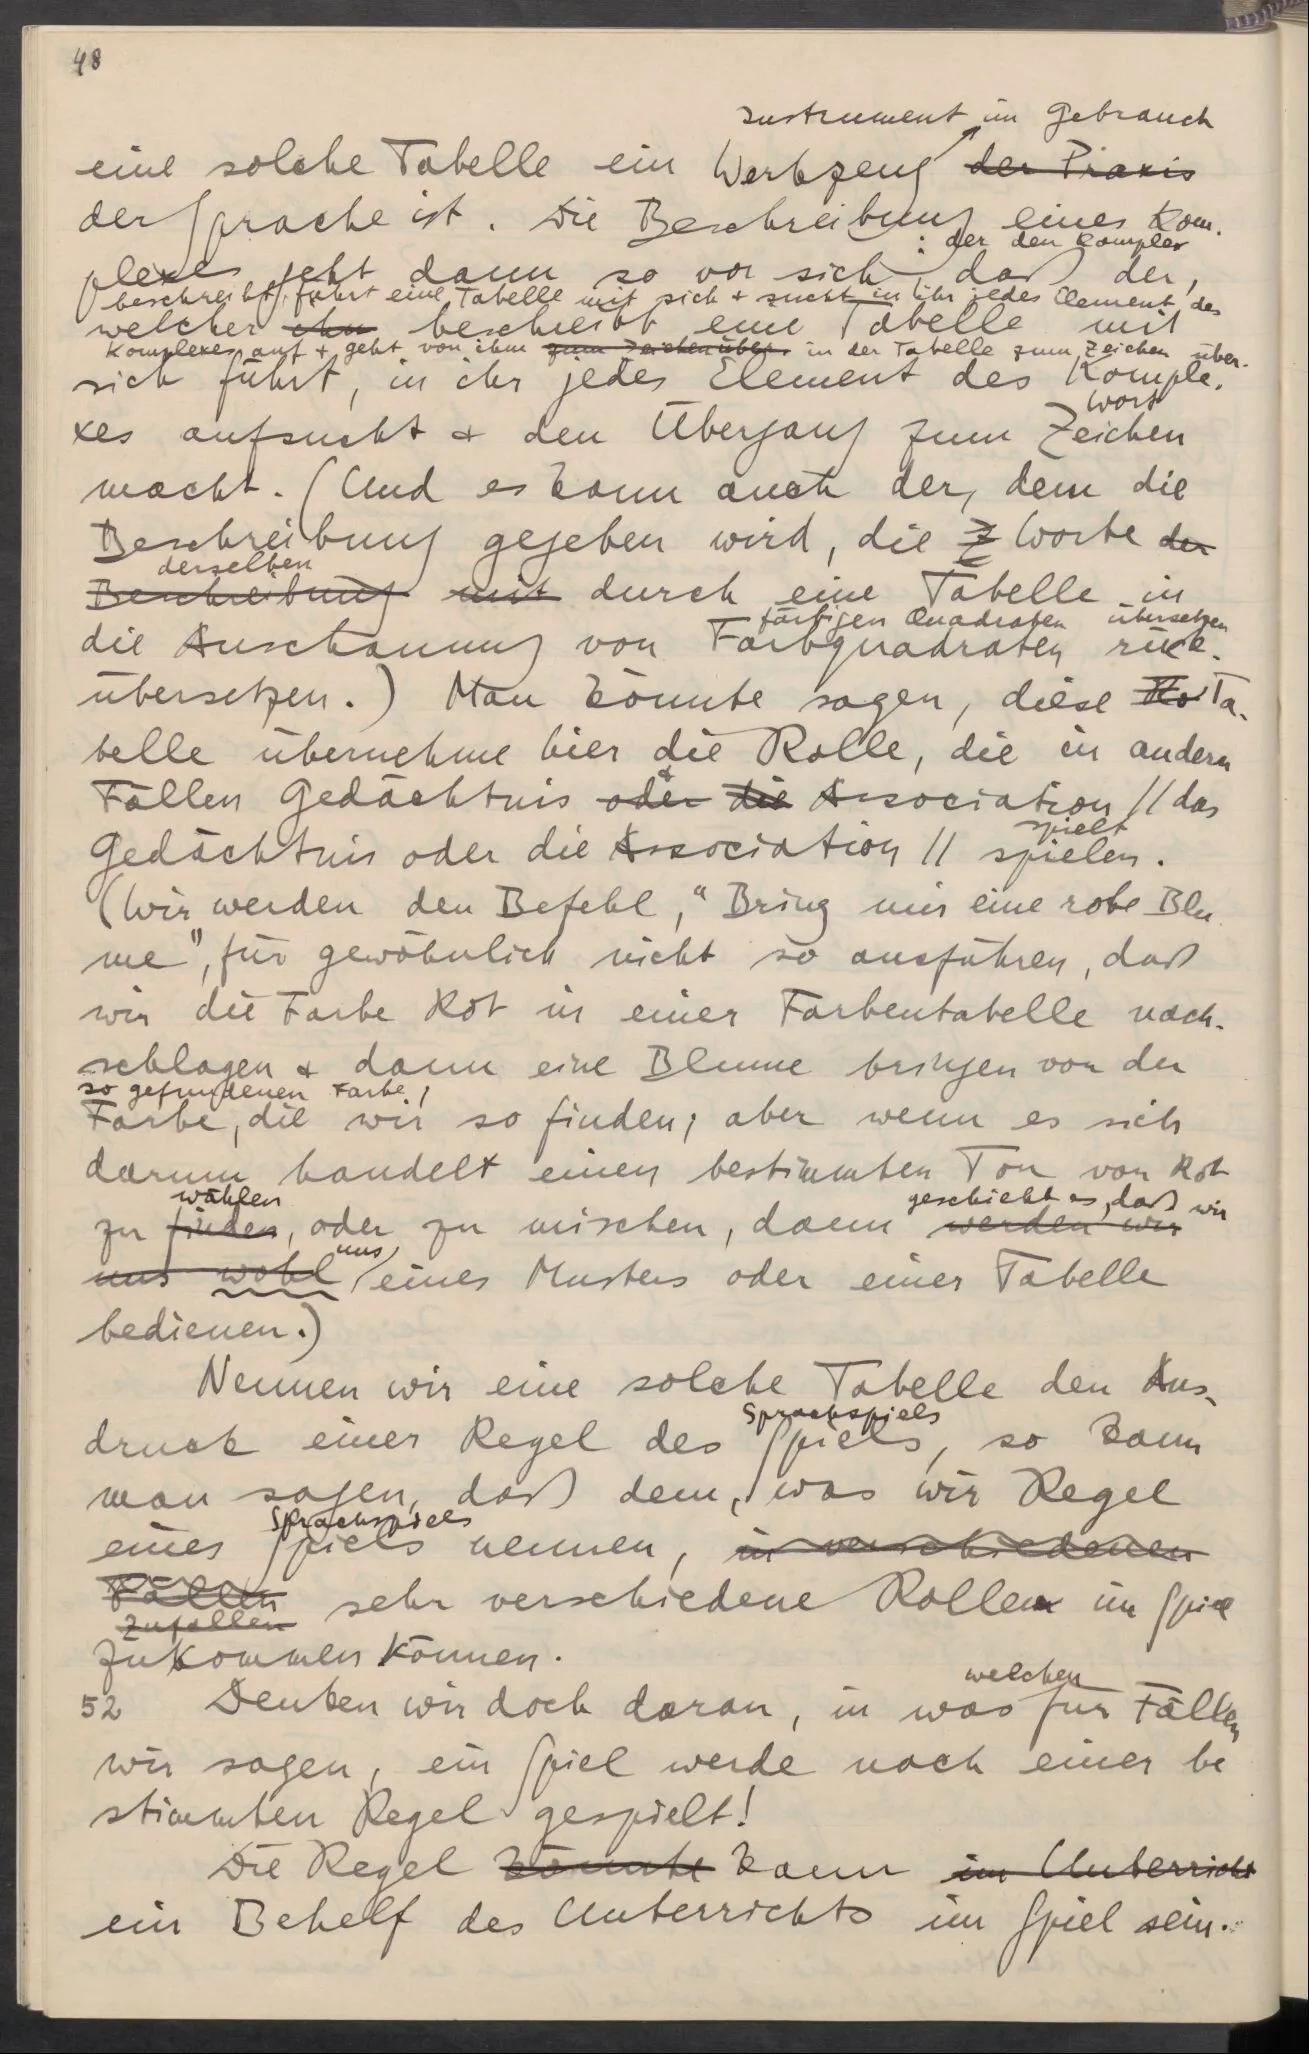 48
Instrument im Gebrauch
eine solche Tabelle ein Werkzeug der Praxis
der Sprache ist. Die Beschreibung eines Kom-
: der den Komplex
plexes geht dann so vor sich, daß der,
beschreibt, führt eine Tabelle mit sich + sucht in ihr jedes Element des
welcher ihn beschreibt eine Tabelle mit
Komplexes auf + geht von ihm zum Zeichen über in der Tabelle zum Zeichen über.
sich führt, in ihr jedes Element des Komple-
Wort
xes aufsucht + den Übergang zum Zeichen
macht. (Und es kann auch der, dem die
Beschreibung gegeben wird, die Z Worte der
derselben
Beschreibung mit durch eine Tabelle in
färbigen Quadraten übersetzen
die Anschauung von Farbquadraten rück-
übersetzen.) Man könnte sagen, diese Ta-
belle übernehme hier die Rolle, die in andern
+
Fällen Gedächtnis oder die Association // das
spielt
Gedächtnis oder die Association // spielen.
(Wir werden den Befehl, "Bring mir eine rote Blu
me", für gewöhnlich nicht so ausführen, daß
wir die Farbe Rot in einer Farbentabelle nach-
schlagen + dann eine Blume bringen von der
so gefundenen Farbe;
Farbe, die wir so finden; aber wenn es sich
darum handelt einen bestimmten Ton von Rot
wählen geschieht es, daß wir
zu finden, oder zu mischen, dann werden wir
uns
uns wohl eines Musters oder einer Tabelle
bedienen.)
Nennen wir eine solche Tabelle den Aus-
Sprachspiels
druck einer Regel des Spiels, so kann
man sagen, daß dem, was wir Regel
Sprachspiels
eines Spiels nennen, in verschiedenen
Fällen sehr verschiedene Rollen im Spiel
zufallen
zukommen können.
welchen
52 Denken wir doch daran, in was für Fällen
wir sagen, ein Spiel werde nach einer be
stimmten Regel gespielt!
Die Regel könnte kann im Unterricht
ein Behelf des Unterrichts im Spiel sein.